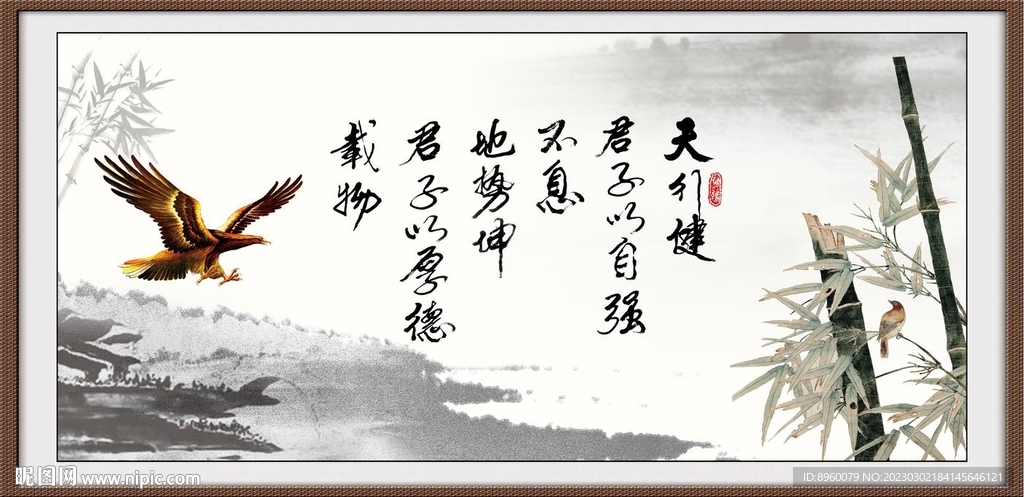 天行健
君子以自强
不息
地势坤
君子以厚德
载物
昵图网 www.nipic.com
ID:8960079 NO:20230302184145646121